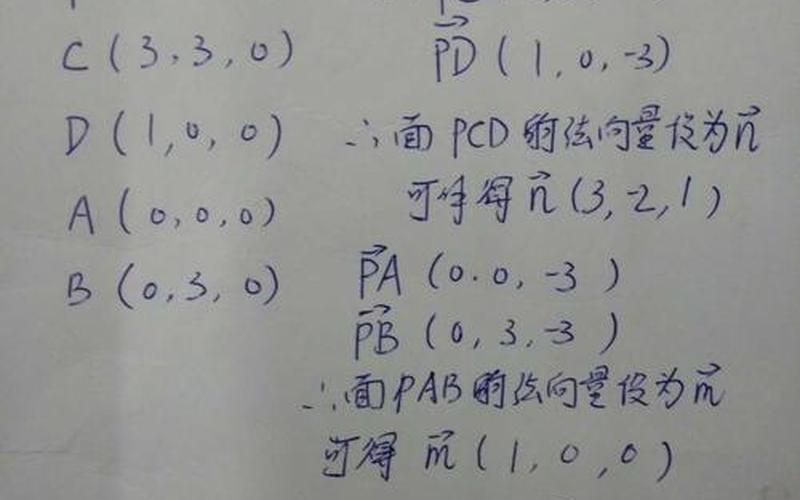 C(3,3,0)
D(1,0,0)
A(0,0,0)
B(0,3,0)
PD(1,0,-3)
∴面PCD的法向量设为n
可得n(3,-2,1)
PA(0.0,-3)
PB(0,3,-3)
∴面PAB的法向量设为m
可得m(1,0,0)